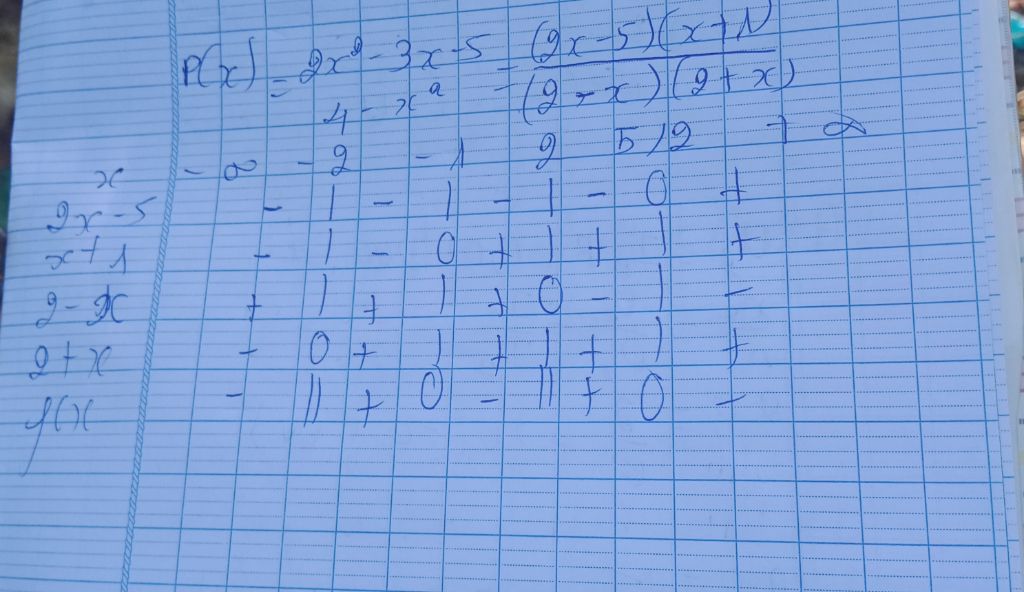 P(x) = 2x² - 3x - 5 = (2x - 5)(x + 1)
4 - x² (2 - x)(2 + x)
x -∞ -2 -1 2 5/2 +∞
2x - 5 - | - | - | - 0 +
x + 1 - | - 0 + | + | +
2 - x + | + | + 0 - | -
2 + x - 0 + | + | + | +
f(x - || + 0 - || + 0 -